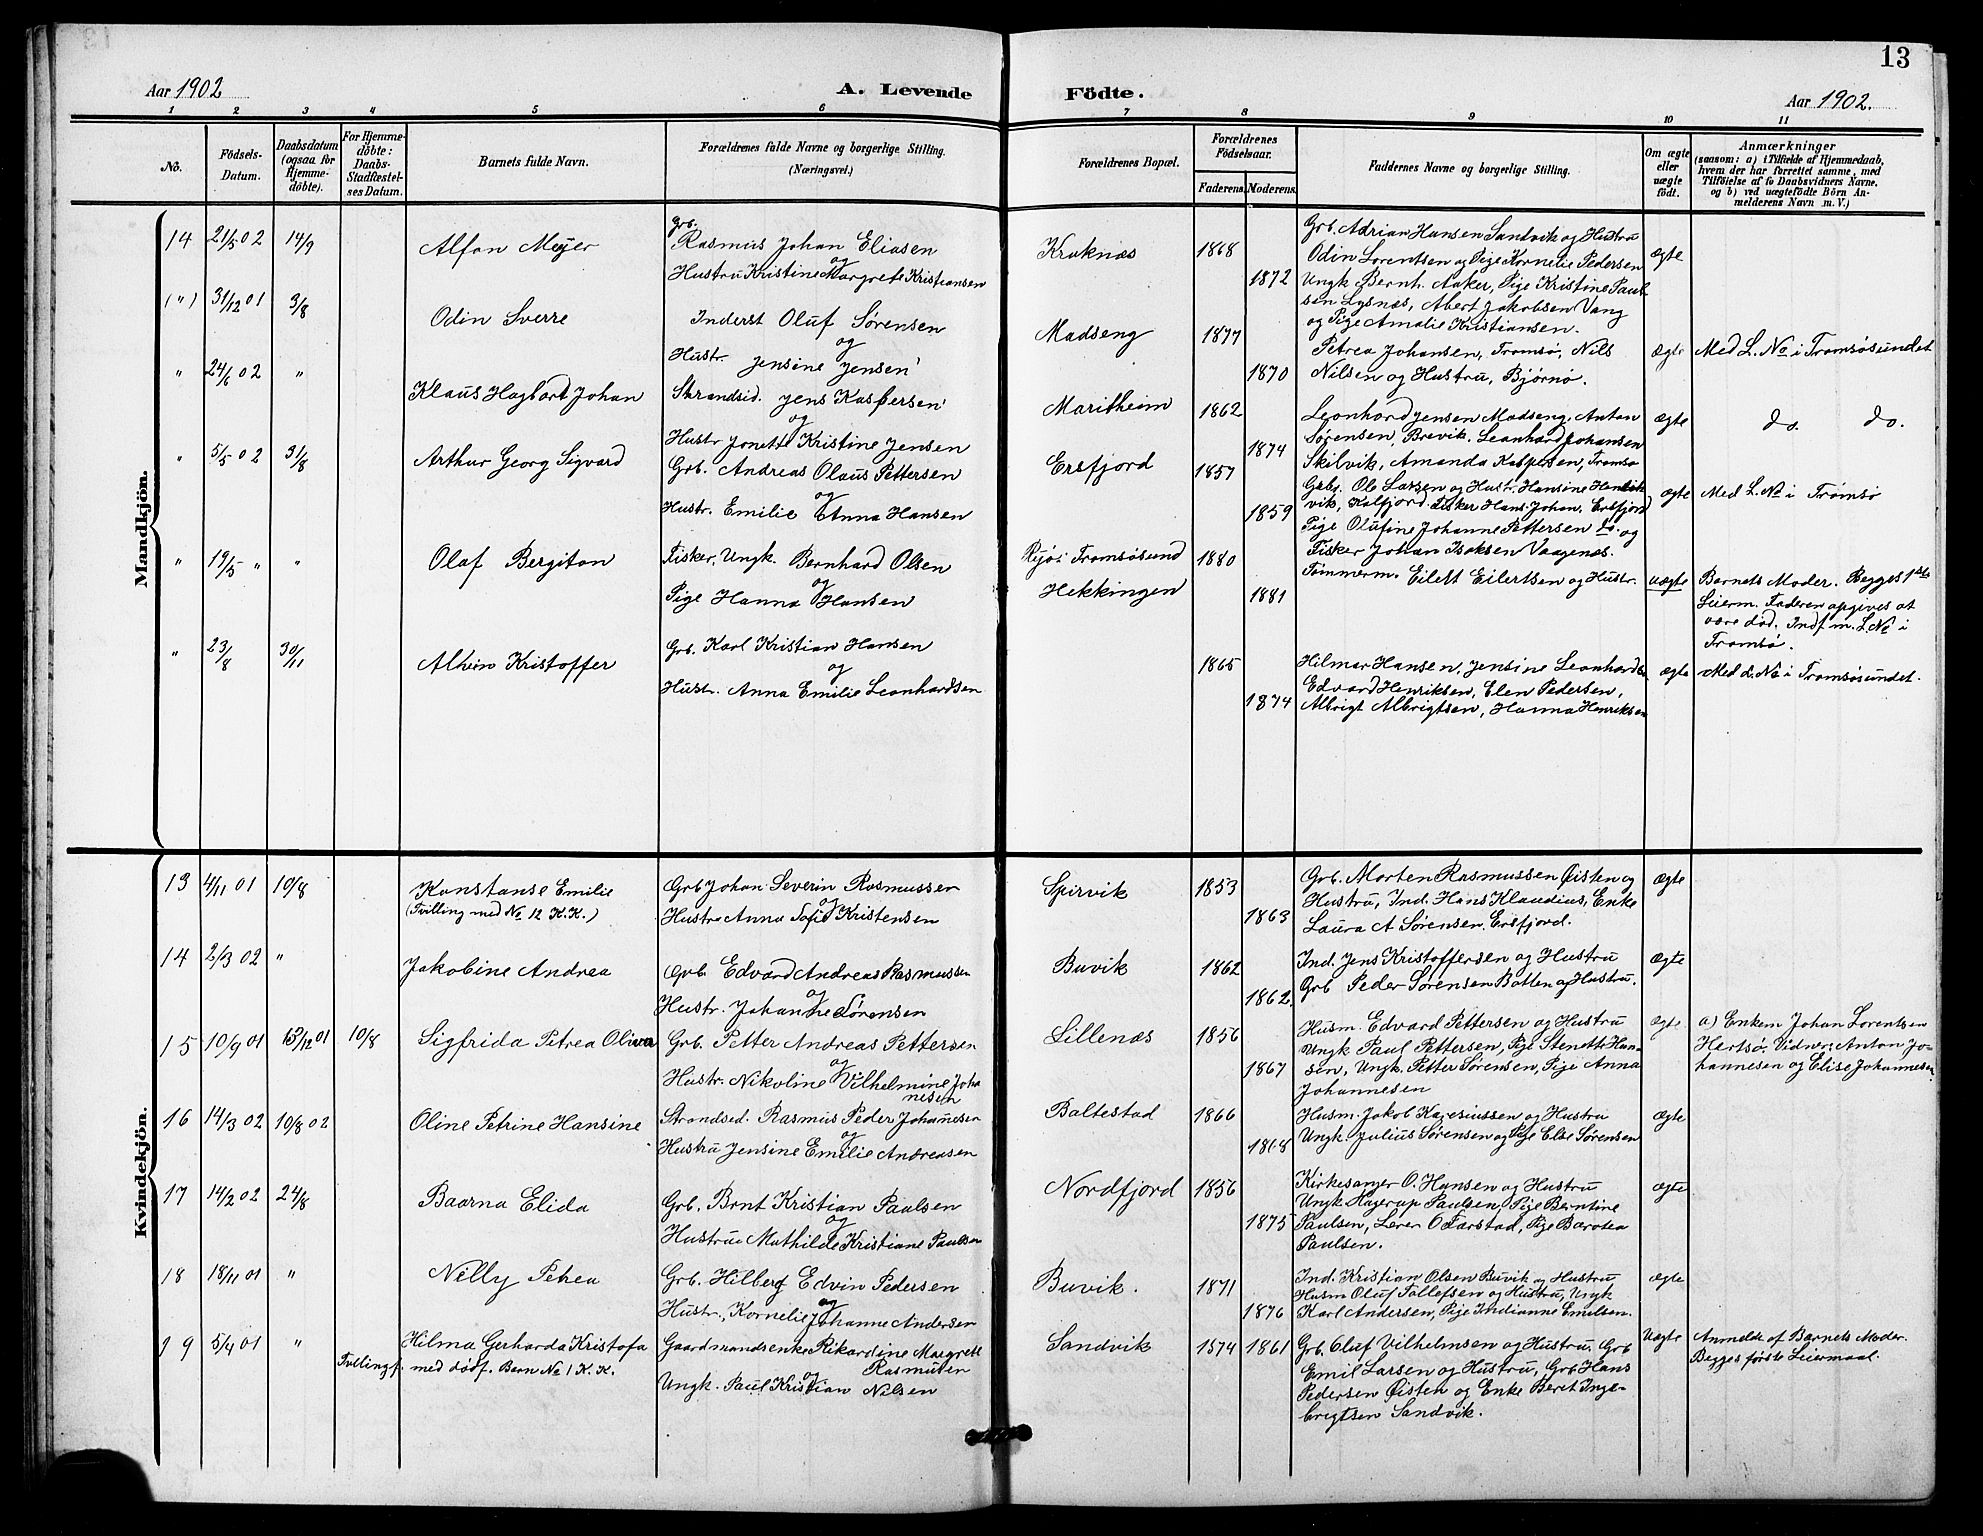 13
Aar 1902
A. Levende
Födte.
Aar 1902.
1 2 3 4 5 6 7 8 9 10 11
No.
Födsels-
Datum.
Daabsdatum
(ogsaa for
Hjemme-
döbte).
For Hjemme-
döbte:
Daabs-
Stadfæstel-
ses Datum.
Barnets fulde Navn.
Forældrenes fulde Navne og borgerlige Stilling.
(Næringsvei.)
Forældrenes Bopæl.
Forældrenes
Födselsaar.
Faderens. Moderens.
Faddernes Navne og borgerlige Stilling.
Om ægte
eller
uægte
födt.
Anmærkninger
(saasom: a) i Tilfælde af Hjemmedaab,
hvem der har forrettet samme, med
Tilföielse af to Daabsvidners Navne,
og b) ved uægtefödte Börn An-
melderens Navn m. V.)
Mandkjön.
14 21/5 02 14/9
Alfon Meyer
Grb.
Rasmus Johan Eliasen
og
Hustru Kristine Margrete Kristiansen
Kraknæs
1868
1872
Grb. Adrian Hansen Sandvik og Hustru
Odin Lorentsen og Pige Kornelie Pedersen
Ungk Bernh. Aaker, Pige Kristine Paul-
sen Lysnæs, Abert Jakobsen Vang
og Pige Amalie Kristiansen.
ægte
(") 31/12 01 3/8
Odin Sverre
Inderst Oluf Sørensen
og
Hustr. Jensine Jensen
Madseng
1877
1870
Petrea Johansen, Tromsø, Nils
Nilsen og Hustru, Bjørnø.
ægte
Med L. No i Tromsøsundet
" 24/6 02 "
Klaus Hagbart Johan
Strandsid. Jens Kaspersen
og
Hustr Jonette Kristine Jensen
Maritheim
1862
1874
Leonhard Jensen Madseng, Anton
Sørensen, Brevik. Leonhard Johansen
Skilvik, Amanda Kaspersen, Tromsø
ægte
do. do.
" 5/5 02 31/8
Arthur Georg Sigvard
Grb. Andreas Olaus Pettersen
og
Hustr. Emilie Anna Hansen
Ersfjord
1857
1859
Grbr. Ole Larsen og Hustr. Hansine
vik, Kalfjord. Fisker Hans Johan, Ersfjord
Pige Olufine Johanne Pettersen do. og
Fisker Johan Isaksen Vaagenæs.
ægte
Med L. No i Tromsø
" 19/5 " "
Olaf Bergiton
Fisker, Ungk. Bernhard Olsen
og
Pige Hanna Hansen
Rejø i Tromsøsund
Hekkingen
1880
1881
Tømmerm. Eilett Eilertsen og Hustr.
uægte
Barnets Moder. Begges 1ste
Leierm. Faderen opgives at
være død. Indf. m. L. No i
Tromsø.
" 23/8 30/11
Alvin Kristoffer
Grb. Karl Kristian Hansen
og
Hustr. Anna Emilie Leonhardsen
1865
1874
Hilmar Hansen, Jensine Leonhards
Edvard Henriksen, Elen Pedersen,
Albrigt Albrigtsen, Hanna Henriksen
ægte
Med L. No i Tromsøsundet.
Kvindekjön.
13 4/11 01 10/8
Konstanse Emilie
(Tvilling med No 12 K.K.)
Grb Johan Severin Rasmussen
og
Hustru Anna Sofie Kristensen
Spirvik
1853
1863
Grb. Morten Rasmussen Øisten og
Hustru, Ind. Hans Klaudius, Enke
Laura A Sørensen. Ersfjord.
ægte
14 2/3 02 "
Jakobine Andrea
Grb. Edvard Andreas Rasmussen
og
Hustr. Johanne Sørensen
Buvik
1862
1862.
Ind. Jens Kristoffersen og Hustru
Grb Peder Sørensen Botten og Hustru.
ægte
15 10/9 01 13/12 01 10/8
Sigfrida Petrea Oliva
Grb. Petter Andreas Pettersen
og
Hustr. Nikoline Vilhelmine Joha
nesen
Lillenæs
1856
1867
Husm. Edvard Pettersen og Hustru
Ungk Paul Pettersen, Pige Stenette Han-
sen, Ungk. Petter Sørensen, Pige Anna
Johannesen
ægte
a) Enkem. Johan Lorentsen
Hertsø. Vidner: Anton Jo-
hannesen og Elise Johannesen.
16 14/3 02 10/8 02
Oline Petrine Hansine
Strandsed. Rasmus Peder Johannesen
og
Hustru Jensine Emilie Andreasen
Baltestad
1866
1868
Husm. Jakob og Hustru
Ungk. Julius Sørensen og Pige Else Sørensen
ægte
17 14/2 02 24/8
Baarna Elida
Grb. Brnt Kristian Paulsen
og
Hustrue Mathilde Kristiane Paulsen
Nordfjord
1856
1875
Kirkesanger O. Hansen og Hustru
Ungk Hagerup Paulsen, Pige Berntine
Paulsen, Lærer O Farstad, Pige Barotea
Paulsen.
ægte
18 18/11 01 "
Nilly Petrea
Grb. Hilberg Edvin Pedersen
og
Hustr., Kornelie Johanne Andersen
Buvik.
1871
1876
Ind. Kristian Olsen Buvik og Hustru,
Husm Oluf Tollefsen og Hustru, Ungk
Karl Andersen, Pige Indianne Emilsen.
ægte
19 5/4 01 "
Tvilling f.
Hilma Gerharda Kristofa
med dødf. Barn No 1 K. K.
Gaardmandsenke Rikardine Margrete
Rasmusen
og
Ungk. Paul Kristian Nilsen
Sandvik
1874 1861
Grb. Oluf Vilhelmsen og Hustru, Grb
Emil Larsen og Hustru, Grb Hans
Pedersen Øisten og Enke Beret Inge-
brigtsen Sandvik.
Uægte
Anmeldt af Barnets Moder.
Begges første Leiermaal.